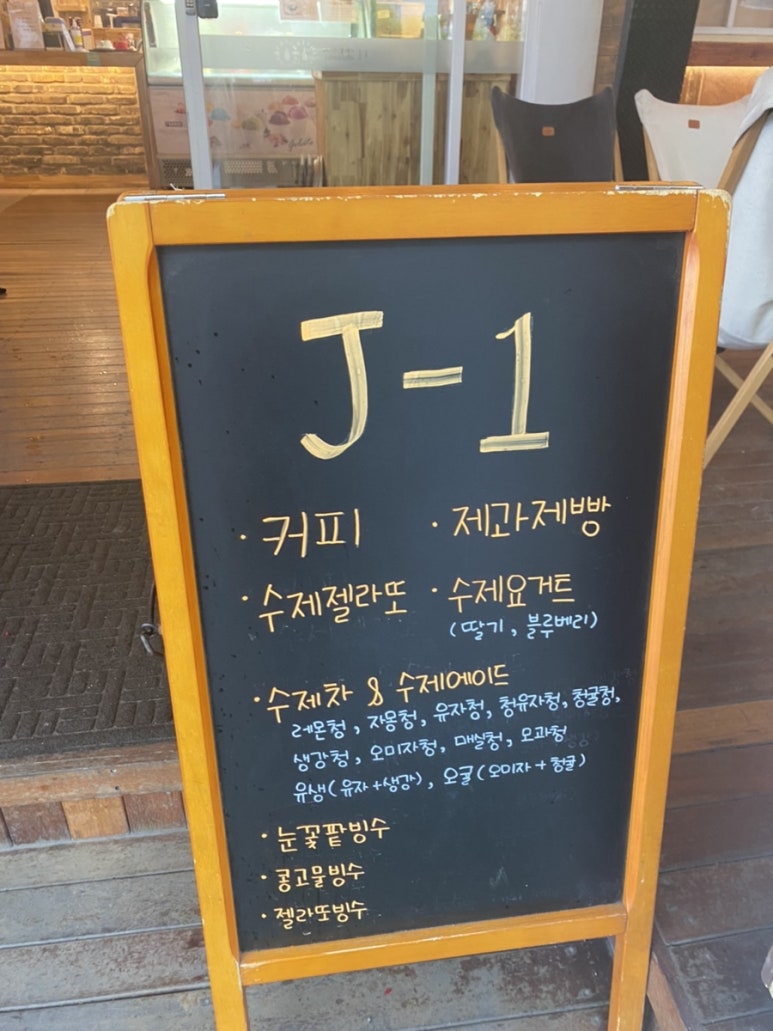 J-1
· 커피 · 제과제빵
· 수제젤라또 · 수제요거트
(딸기, 블루베리)
· 수제차 & 수제에이드
레몬청, 자몽청, 유자청, 청유자청, 청귤청,
생강청, 오미자청, 매실청, 모과청
유생(유자+생강), 오귤(오미자+청귤)
· 눈꽃팥빙수
· 콩고물빙수
· 젤라또빙수